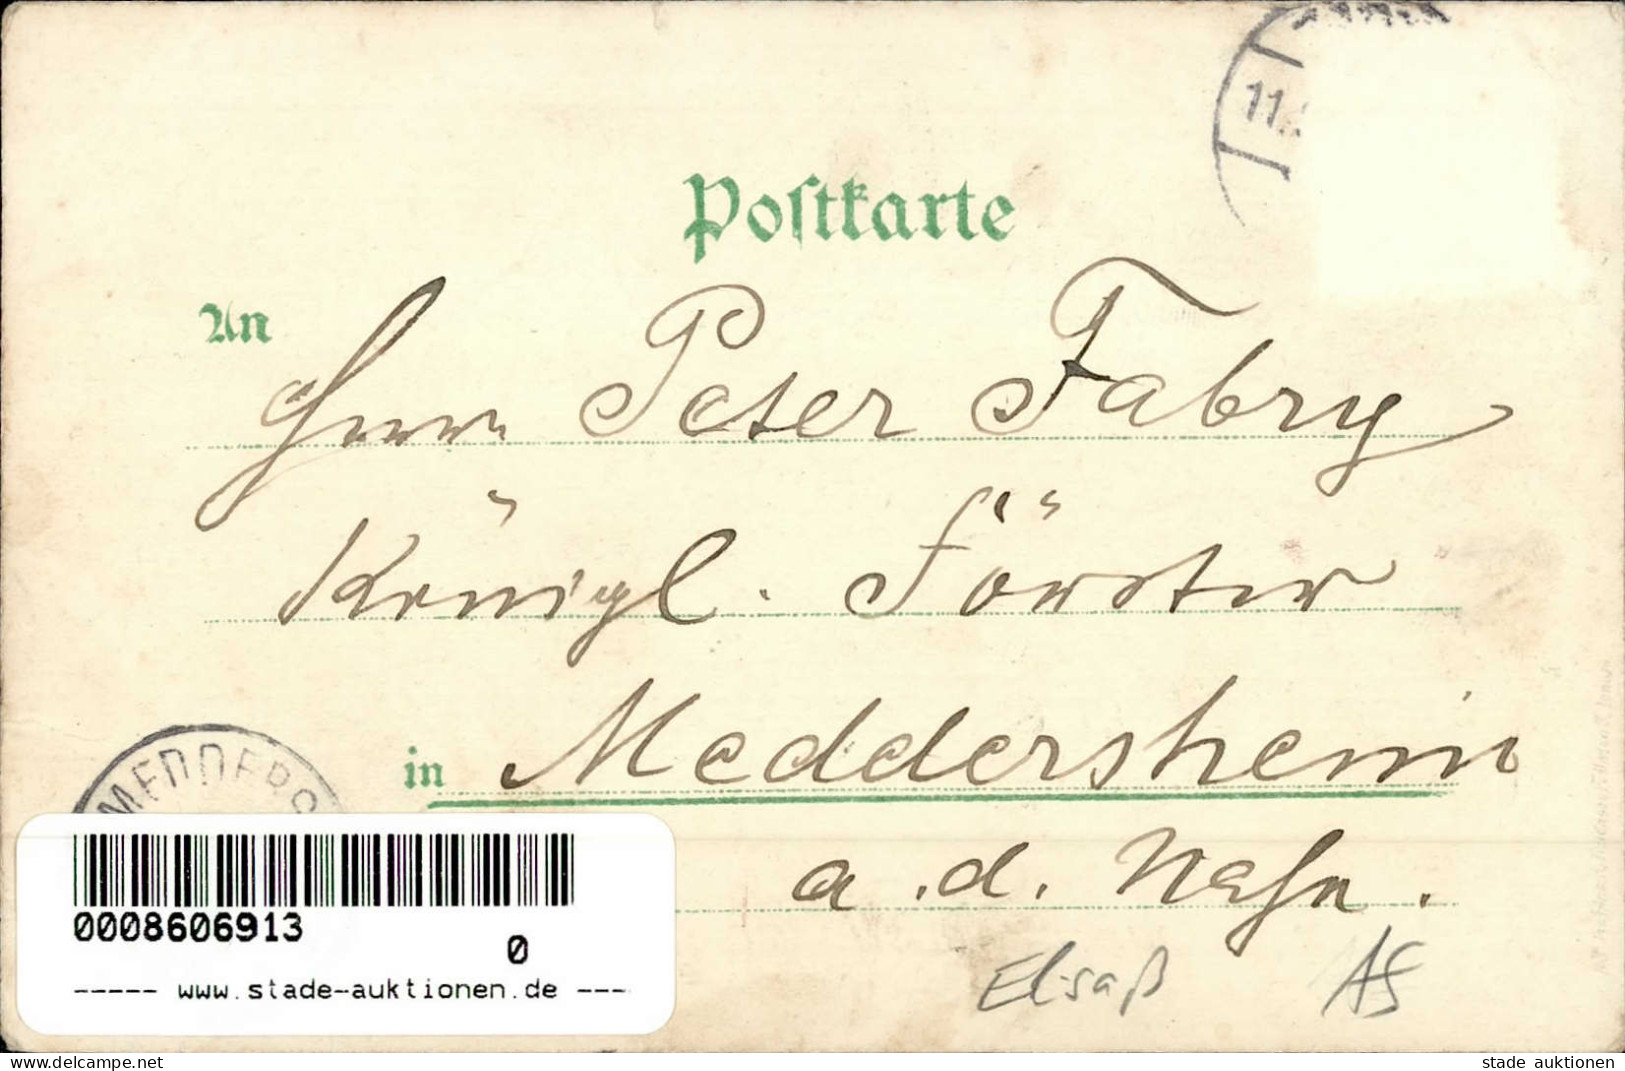 11.
Postkarte
An
Herrn Peter Fabry
Königl. Förster
in Meddersheim
a. d. Nahe.
MEDDERS
Elsaß AS
0008606913
0
----- www.stade-auktionen.de ---
delcampe.net
stade auktionen